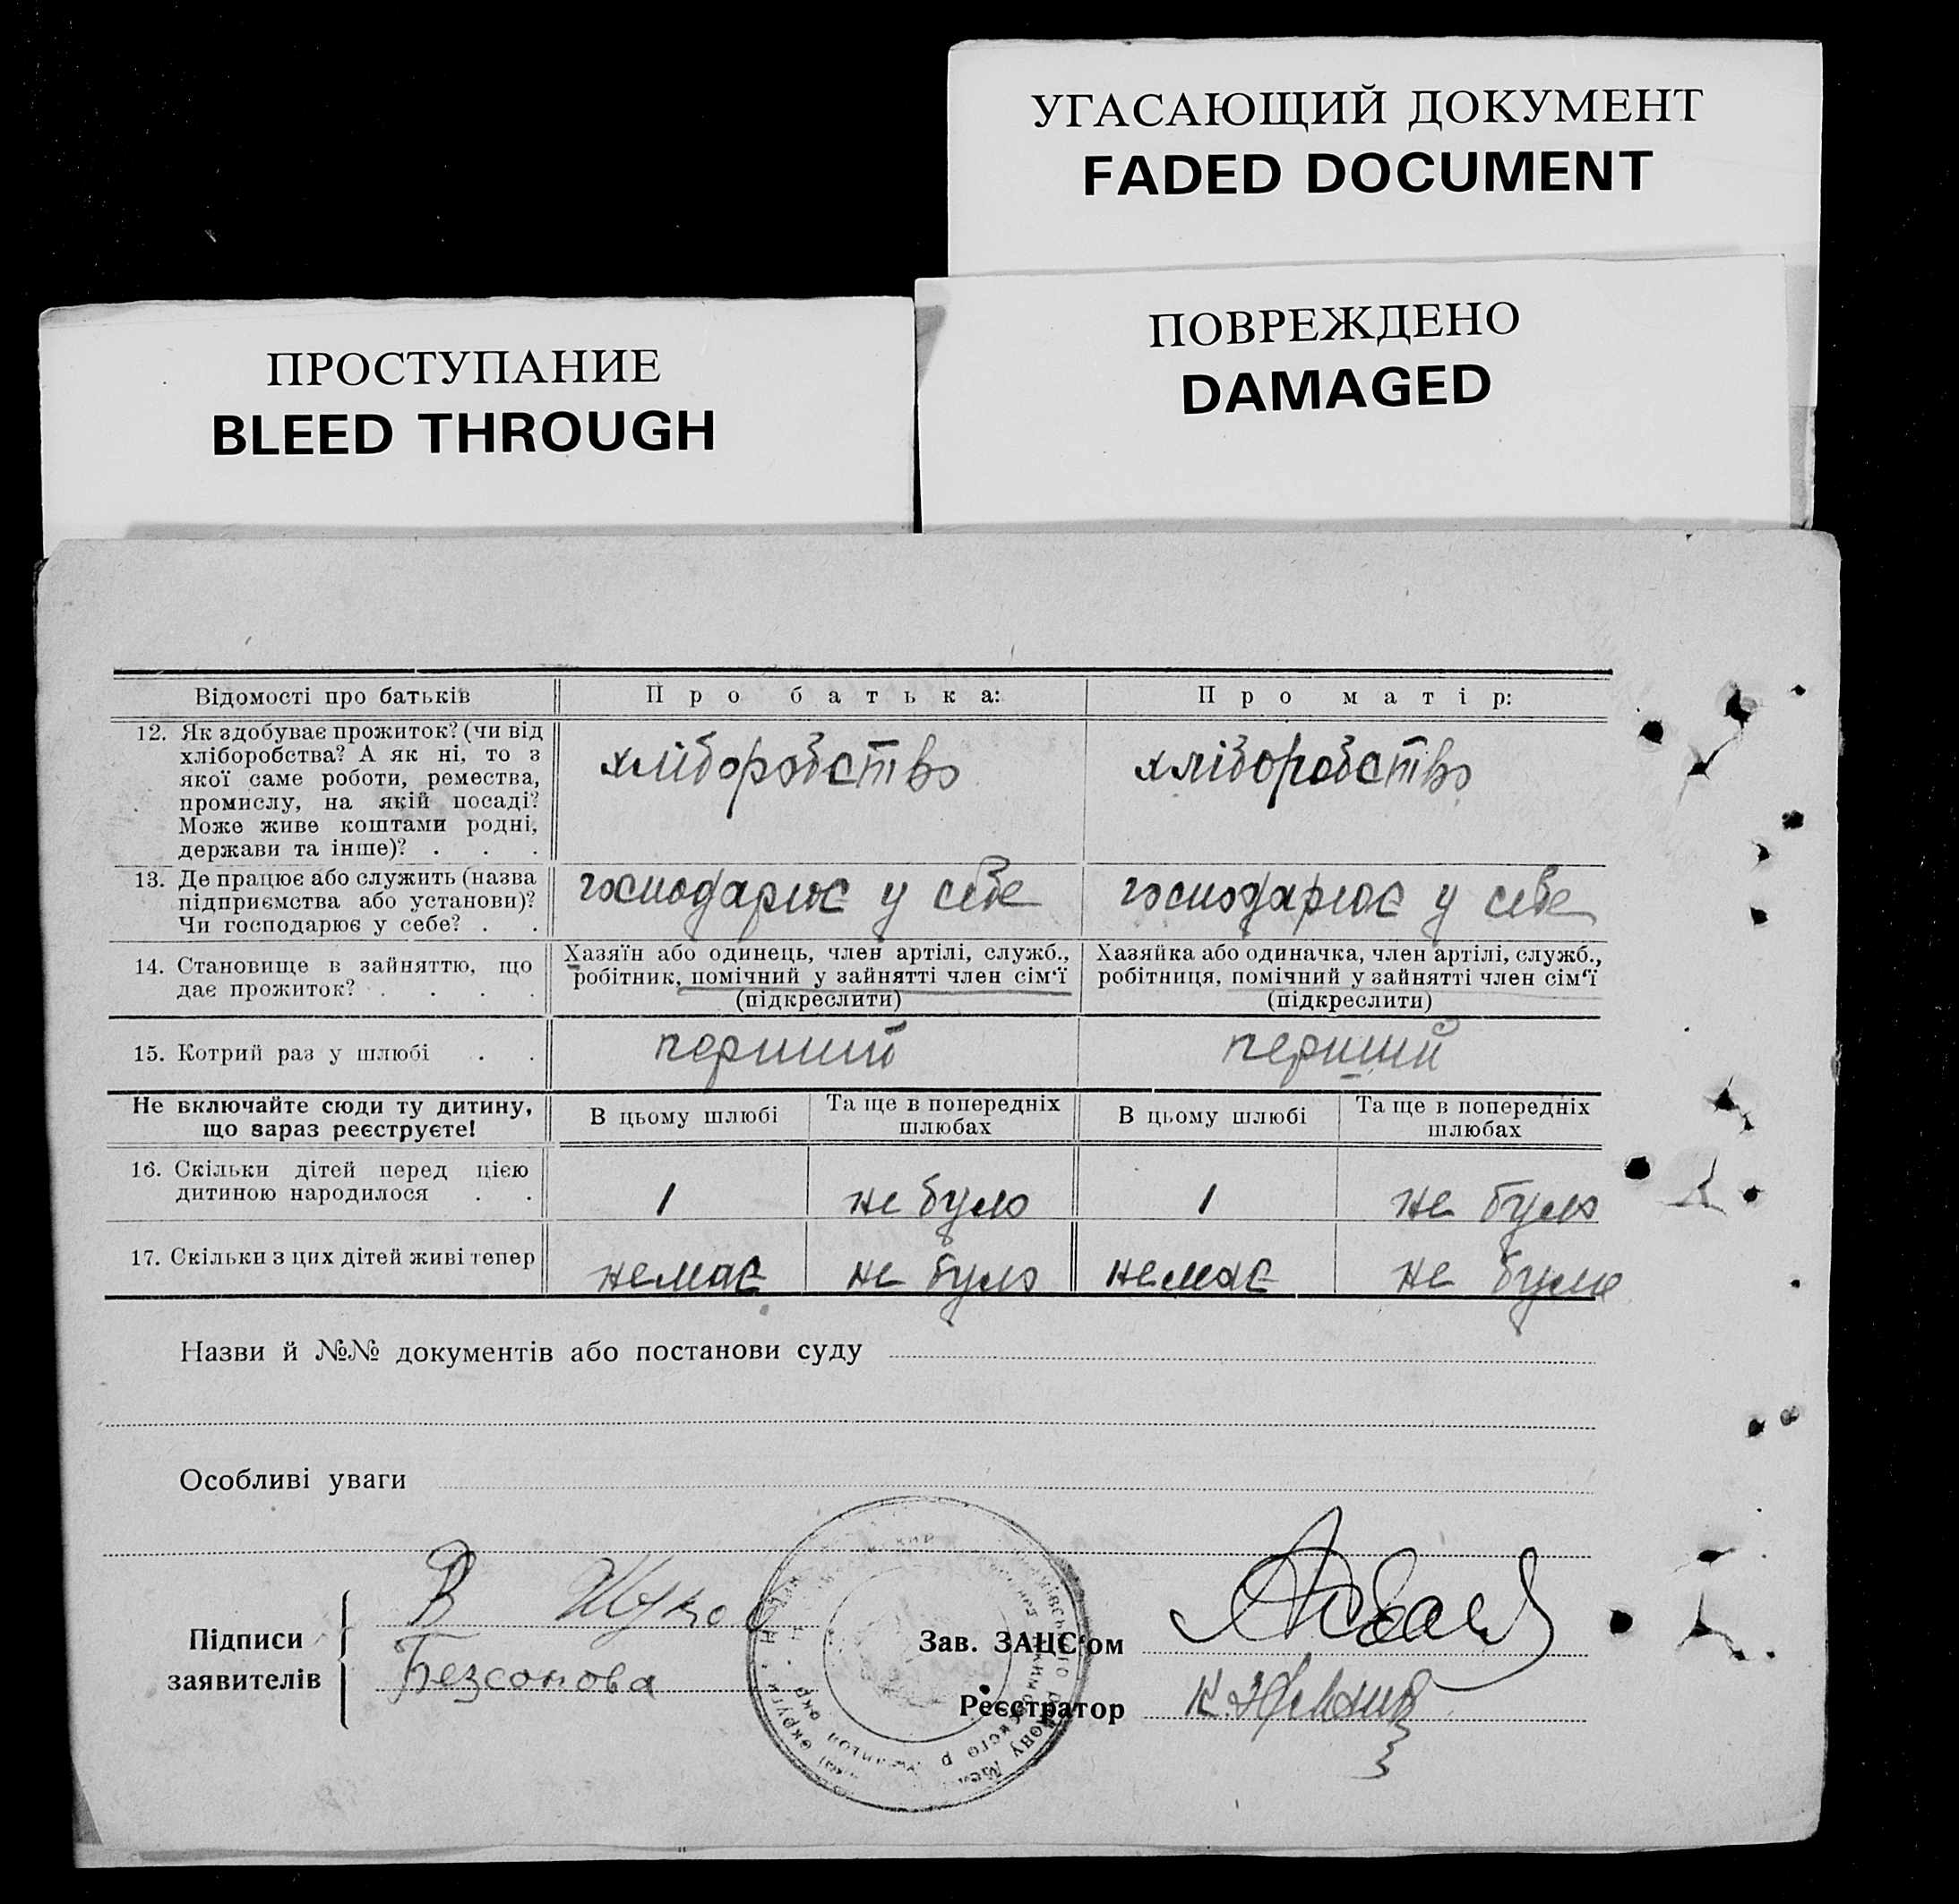 УГАСАЮЩИЙ ДОКУМЕНТ
FADED DOCUMENT
ПОВРЕЖДЕНО
DAMAGED
ПРОСТУПАНИЕ
BLEED THROUGH
Відомості про батьків
Про батька:
Про матір:
12. Як здобуває прожиток? (чи від
хліборобства? А як ні, то з
якої саме роботи, ремества,
промислу, на якій посаді?
Може живе коштами родні,
держави та інше)? . . .
хліборобство
хліборобство
13. Де працює або служить (назва
підприємства або установи)?
Чи господарює у себе? . .
господарює у себе
господарює у себе
14. Становище в зайняттю, що
дає прожиток? . . . .
Хазяїн або одинець, член артілі, служб.,
робітник, помічний у зайнятті член сім'ї
(підкреслити)
Хазяйка або одиначка, член артілі, служб.,
робітниця, помічний у зайнятті член сім'ї
(підкреслити)
15. Котрий раз у шлюбі . .
перший
перший
Не включайте сюди ту дитину,
що зараз реєструєте!
В цьому шлюбі
Та ще в попередніх
шлюбах
В цьому шлюбі
Та ще в попередніх
шлюбах
16. Скільки дітей перед цією
дитиною народилося . .
1
не було
1
не було
17. Скільки з цих дітей живі тепер
немає
не було
немає
не було
Назви й №№ документів або постанови суду
Особливі уваги
Підписи
заявителів
В
Безсонова
Зав. ЗАЦС'ом
Реєстратор